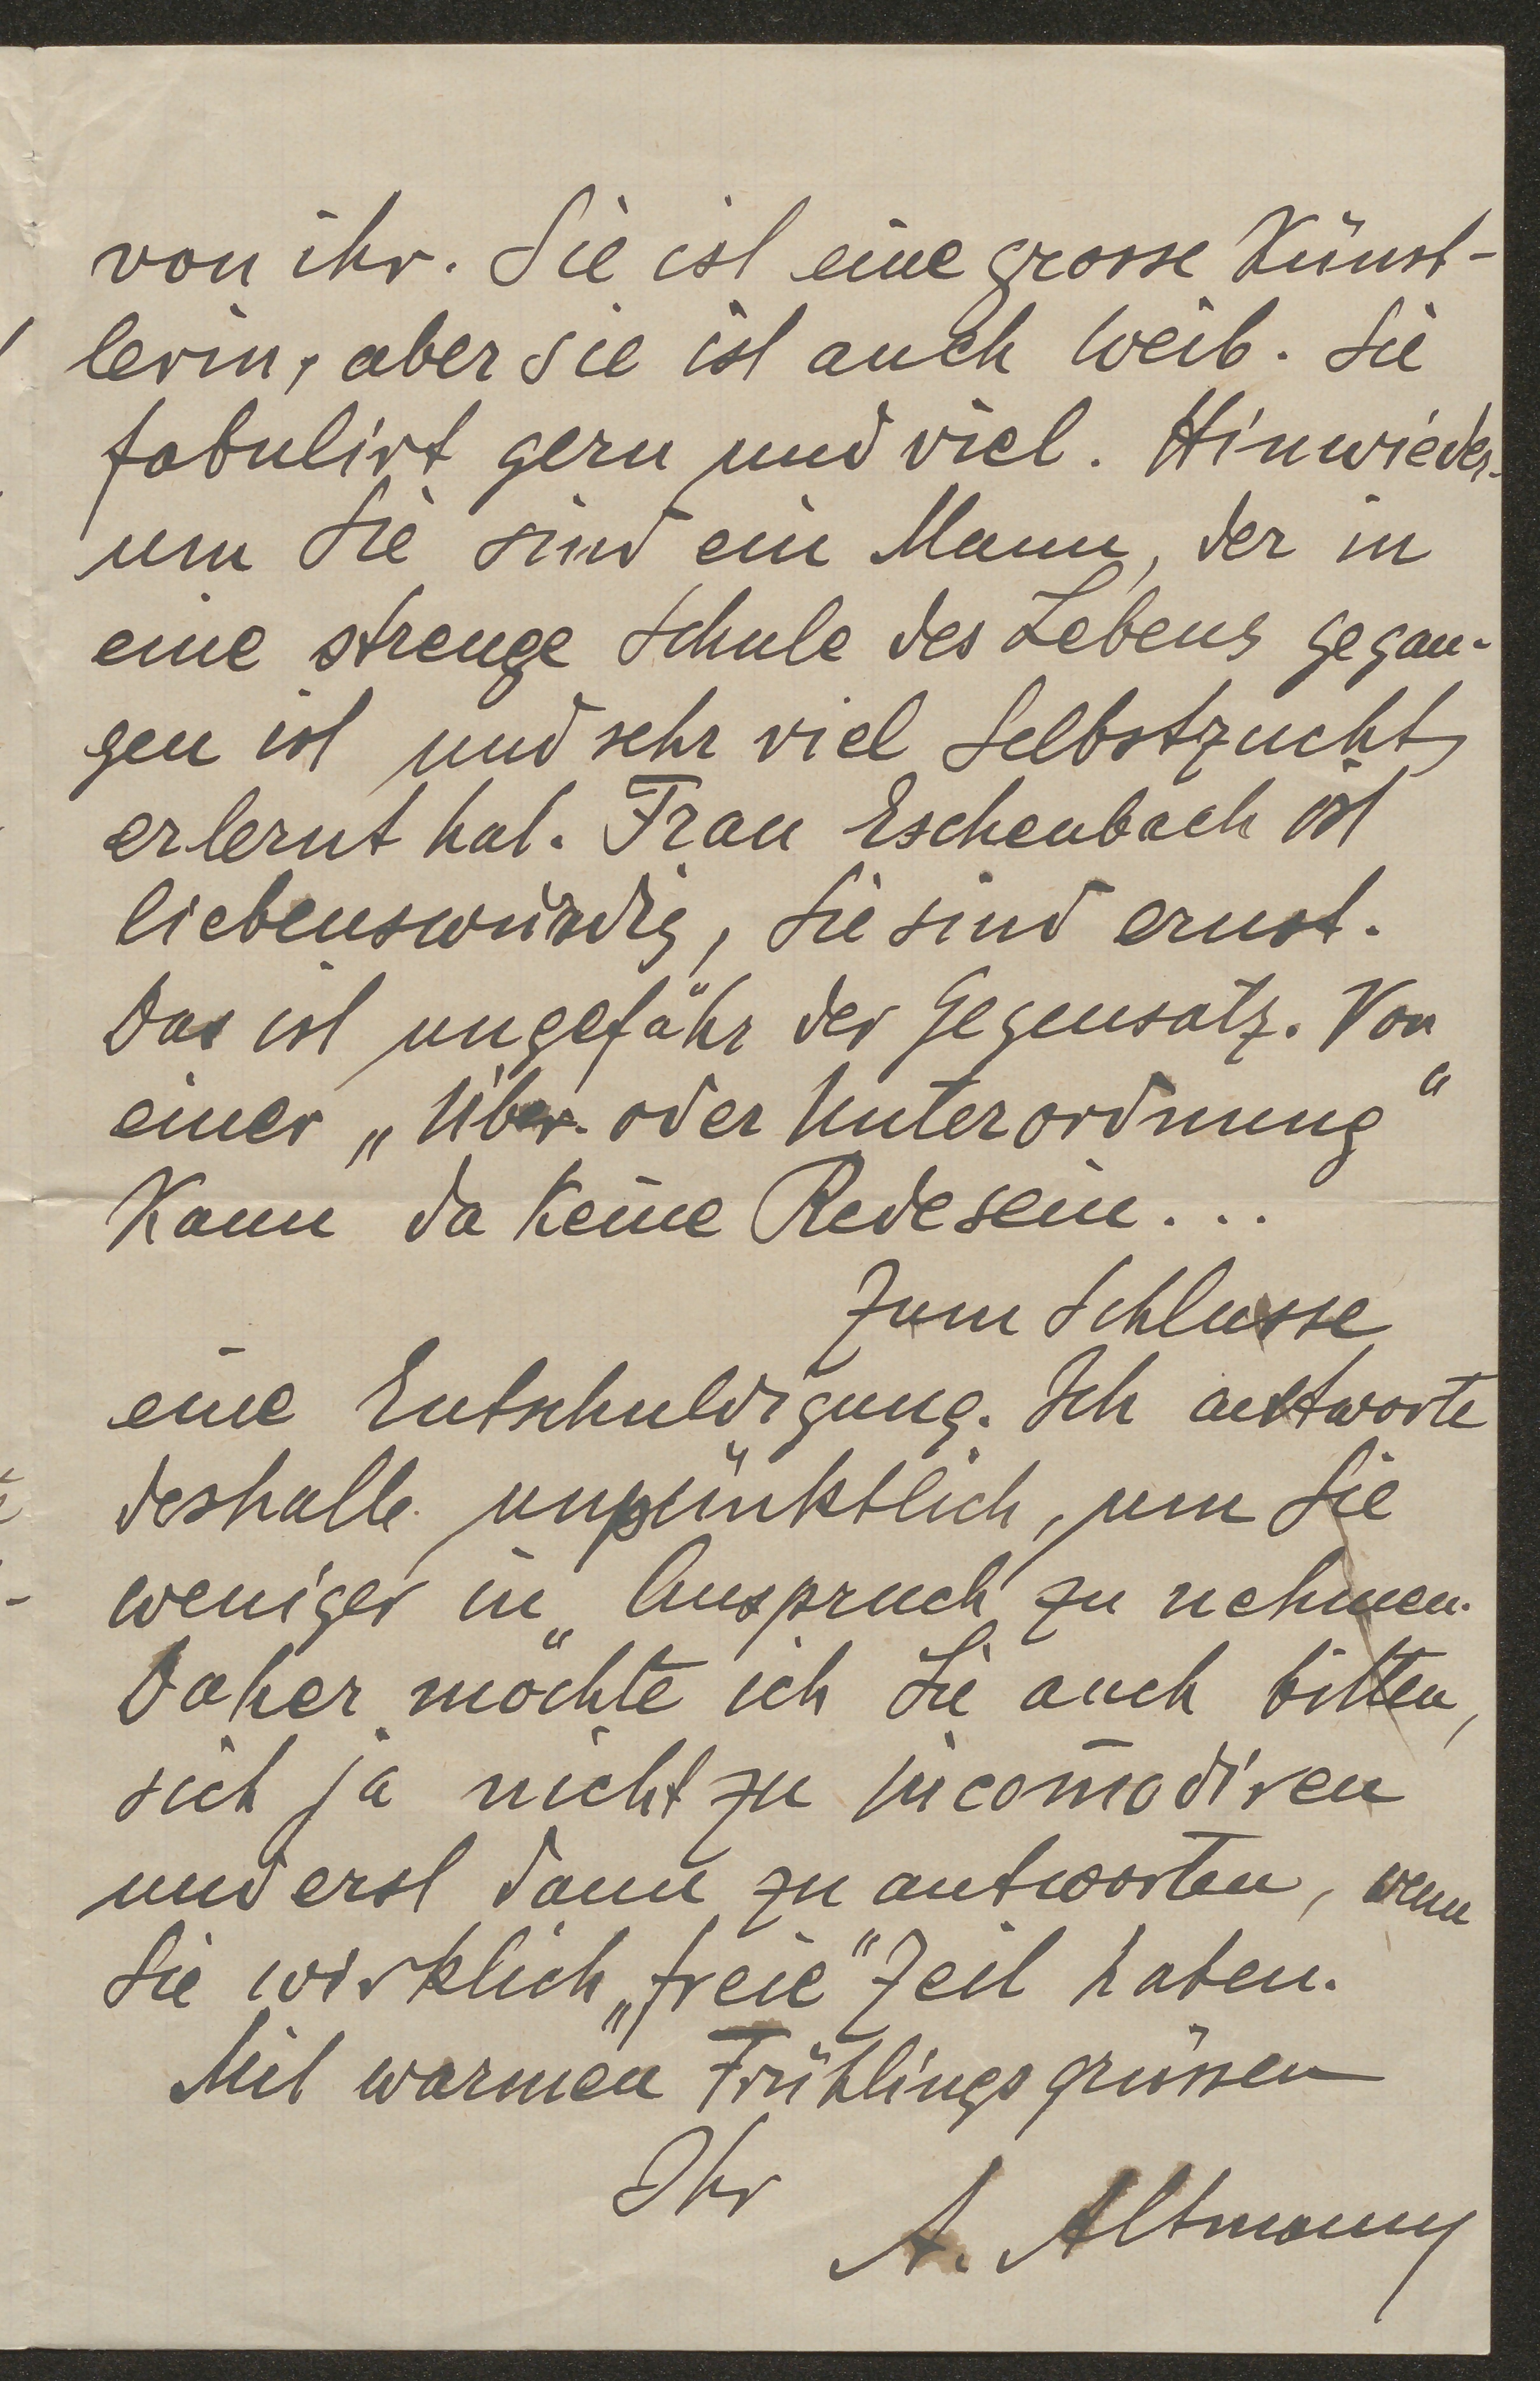 von ihr. Sie ist eine grosse Künst-
lerin, aber sie ist auch Weib. Sie
fabulirt gern und viel. Hinwieder-
um Sie sind ein Mann, der in
eine strenge Schule des Lebens gegan-
gen ist und sehr viel Selbstzucht
erlernt hat. Frau Eschenbach ist
liebenswürdig, Sie sind ernst.
Das ist ungefähr der Gegensatz. Von
einer „Über- oder Unterordnung“
kann da keine Rede sein...
Zum Schlusse
eine Entschuldigung. Ich antworte
deshalb unpünktlich, um Sie
weniger in „Anspruch“ zu nehmen.
Daher möchte ich Sie auch bitten,
sich ja nicht zu incom̅odiren
und erst dann zu antworten, wenn
Sie wirklich „freie“ Zeit haben.
Mit warmen Frühlingsgrüssen
Ihr
A. Altmann